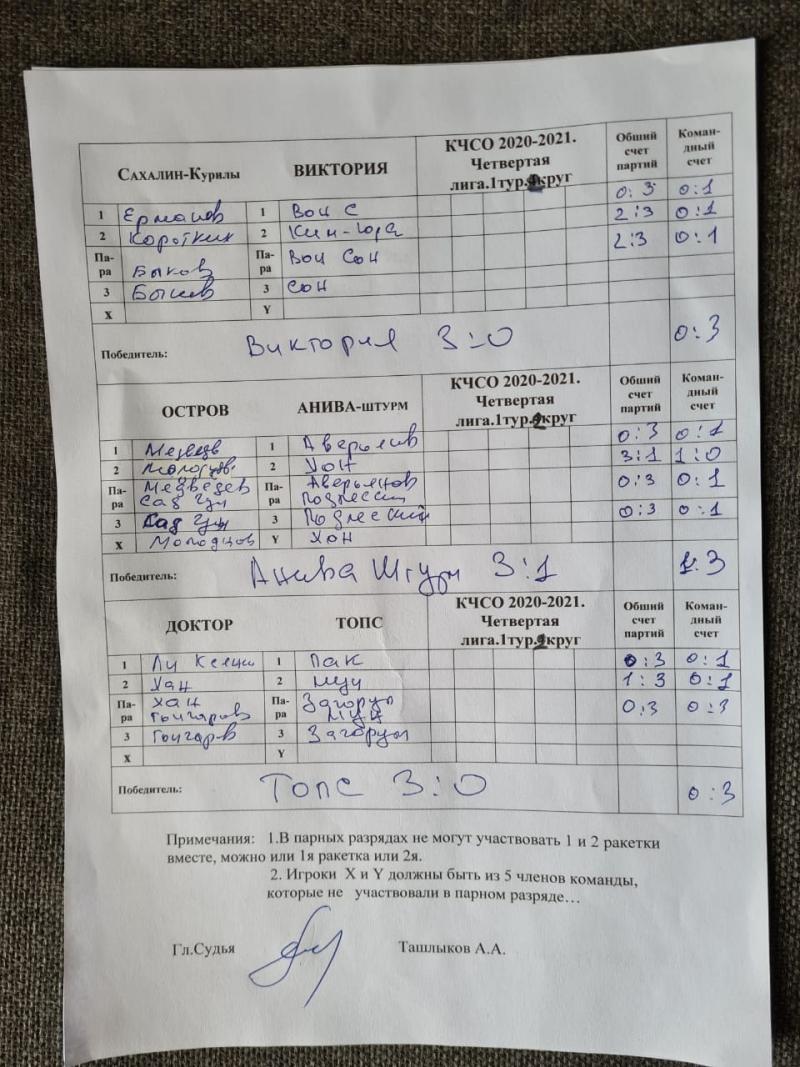 Сахалин-Курилы ВИКТОРИЯ КЧСО 2020-2021. Четвертая лига.1тур.2круг Общий счет партий Коман-дный счет
0:3 0:1
1 Ермаков 1 Вон С 2:3 0:1
2 Коротких 2 Ким-Юра 2:3 0:1
Па-ра Быков Па-ра Вон Сон
3 Быков 3 Сон
X Y
Победитель: Виктория 3:0 0:3
ОСТРОВ АНИВА-ШТУРМ КЧСО 2020-2021. Четвертая лига.1тур.2круг Общий счет партий Коман-дный счет
1 Медведев 1 Аверьянов 0:3 0:1
2 2 Хон 3:1 1:0
Па-ра Медведев Па-ра Аверьянов 0:3 0:1
Сад Гун Подлесный
3 Сад Гун 3 Подлесный 0:3 0:1
X Молодцов Y Хон
Победитель: Анива Штурм 3:1 1:3
ДОКТОР ТОПС КЧСО 2020-2021. Четвертая лига.1тур.2круг Общий счет партий Коман-дный счет
1 Ли 1 Пак 0:3 0:1
2 Хан 2 Мун 1:3 0:1
Па-ра Хан Па-ра 0:3 0:3
Гончаров Мун
3 Гончаров 3
X Y
Победитель: Топс 3:0 0:3
Примечания: 1.В парных разрядах не могут участвовать 1 и 2 ракетки
вместе, можно или 1я ракетка или 2я.
2. Игроки X и Y должны быть из 5 членов команды,
которые не участвовали в парном разряде…
Гл.Судья Ташлыков А.А.